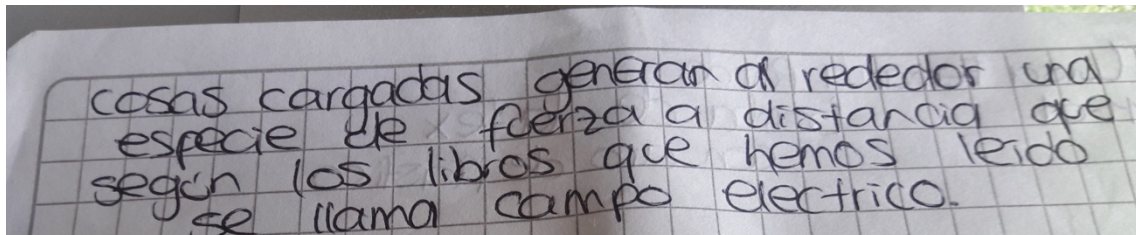 cosas cargadas generan al rededor una
especie de fuerza a distancia que
según los libros que hemos leido
se llama campo electrico.